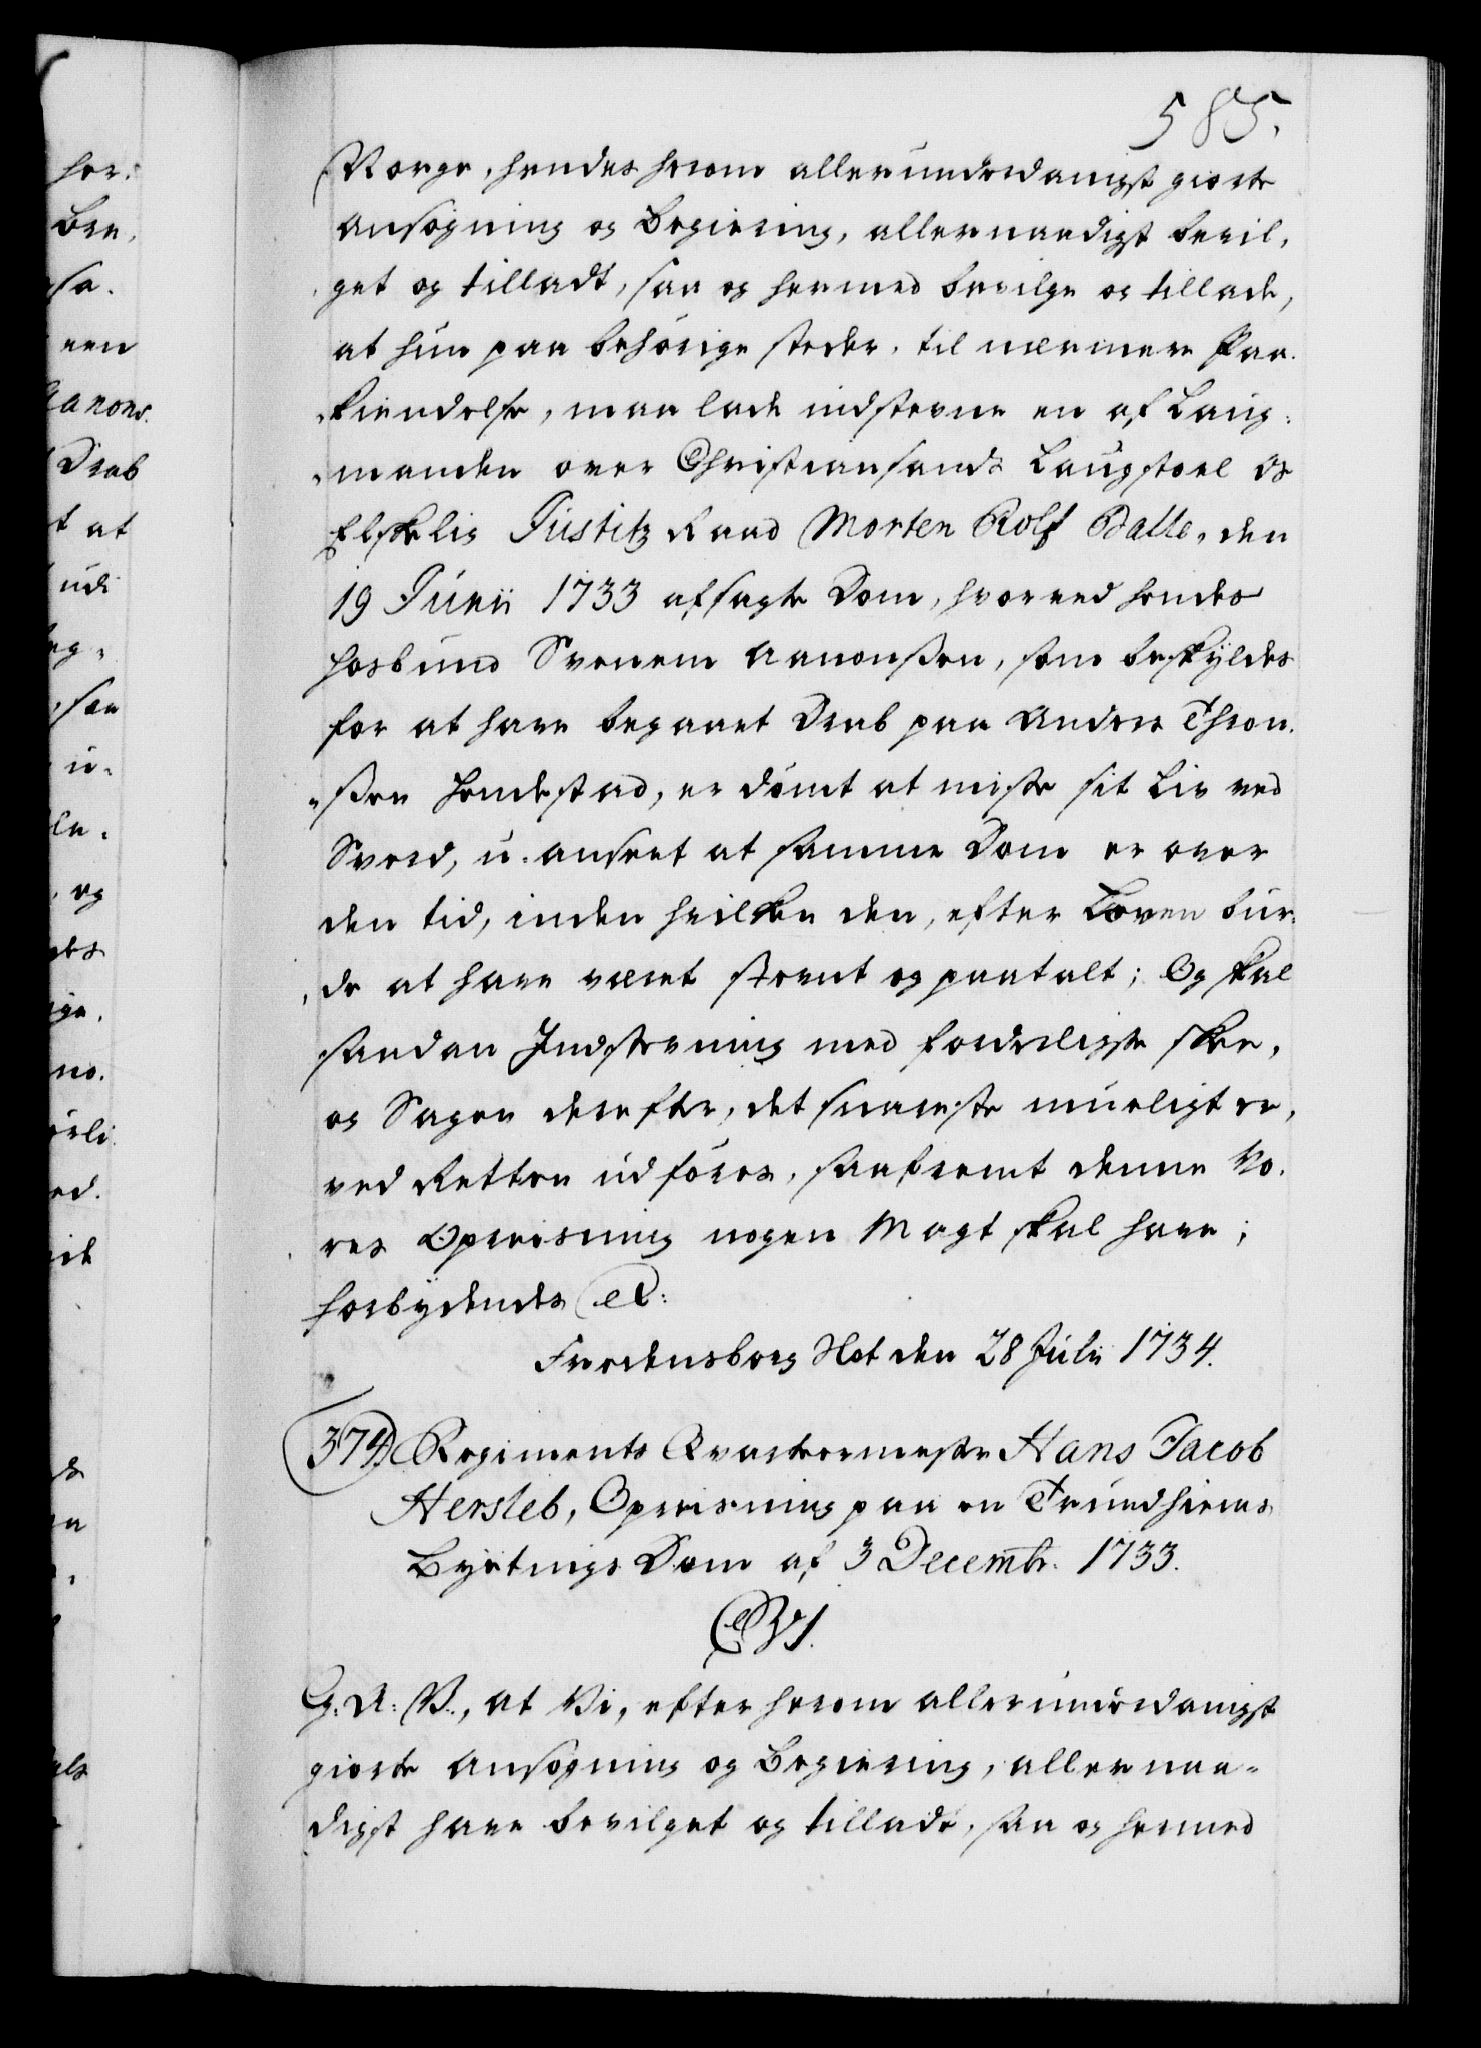 585.
Norge, hendes herom allerunderdanigst giorte
Ansøgning og Begiering, allernaadigst bevil-
get og tilladt, saa og hermed bevilge og tillade,
at hun paa behørige steder, til nærmere Paa-
kiendelse, maa lade indstevne en af Laug-
manden over Christiansands Laugstoel Os
Elskelig Justitz Raad Morten Rolf Balle, den
19 Junii 1733 afsagte Dom, hvorved hendes
Hosbund Svenem Aanonsen, som beskyldes
for at have begaaet Drab paa Anders Thron-
sen Hendestad, er dømt at miste sit Liv ved
Sverd, u-anseet at samme Dom er over
den tid, inden hvilken den, efter Loven bur-
de at have været stevnt og paatalt; Og skal
saadan Indstevning med forderligste skee,
og Sagen derefter, det snareste mueligt er,
ved Retten udføres, saafremt denne Vo-
res Opreisning nogen Magt skal have;
Forbydendes etc:
Fredensborg Slot den 28 Julii 1734.
374) Regiments Qvarteermester Hans Jacob
Hersleb, Opreisning paa en Trundhiems
Byetings Dom af 3 Decembr. 1733.
C VI.
G: A: V., at Vi, efter herom allerunderdanigst
giorte Ansøgning og Begiering, allernaa-
digst have bevilget og tilladt, saa og hermed